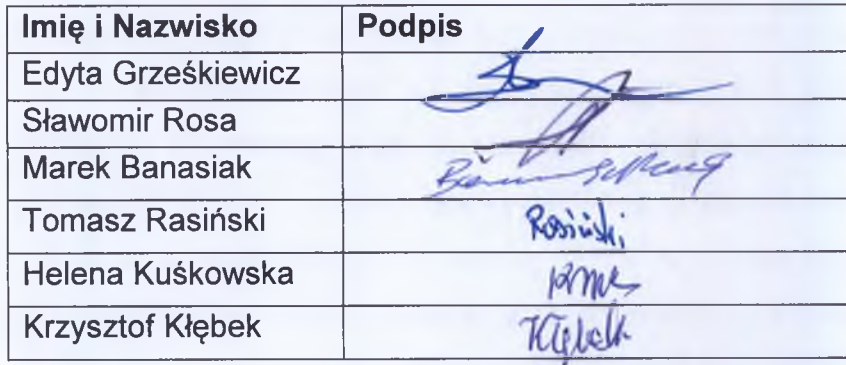 Imię i Nazwisko Podpis
Edyta Grześkiewicz
Sławomir Rosa
Marek Banasiak
Tomasz Rasiński Rasiński
Helena Kuśkowska
Krzysztof Kłębek Kłębek